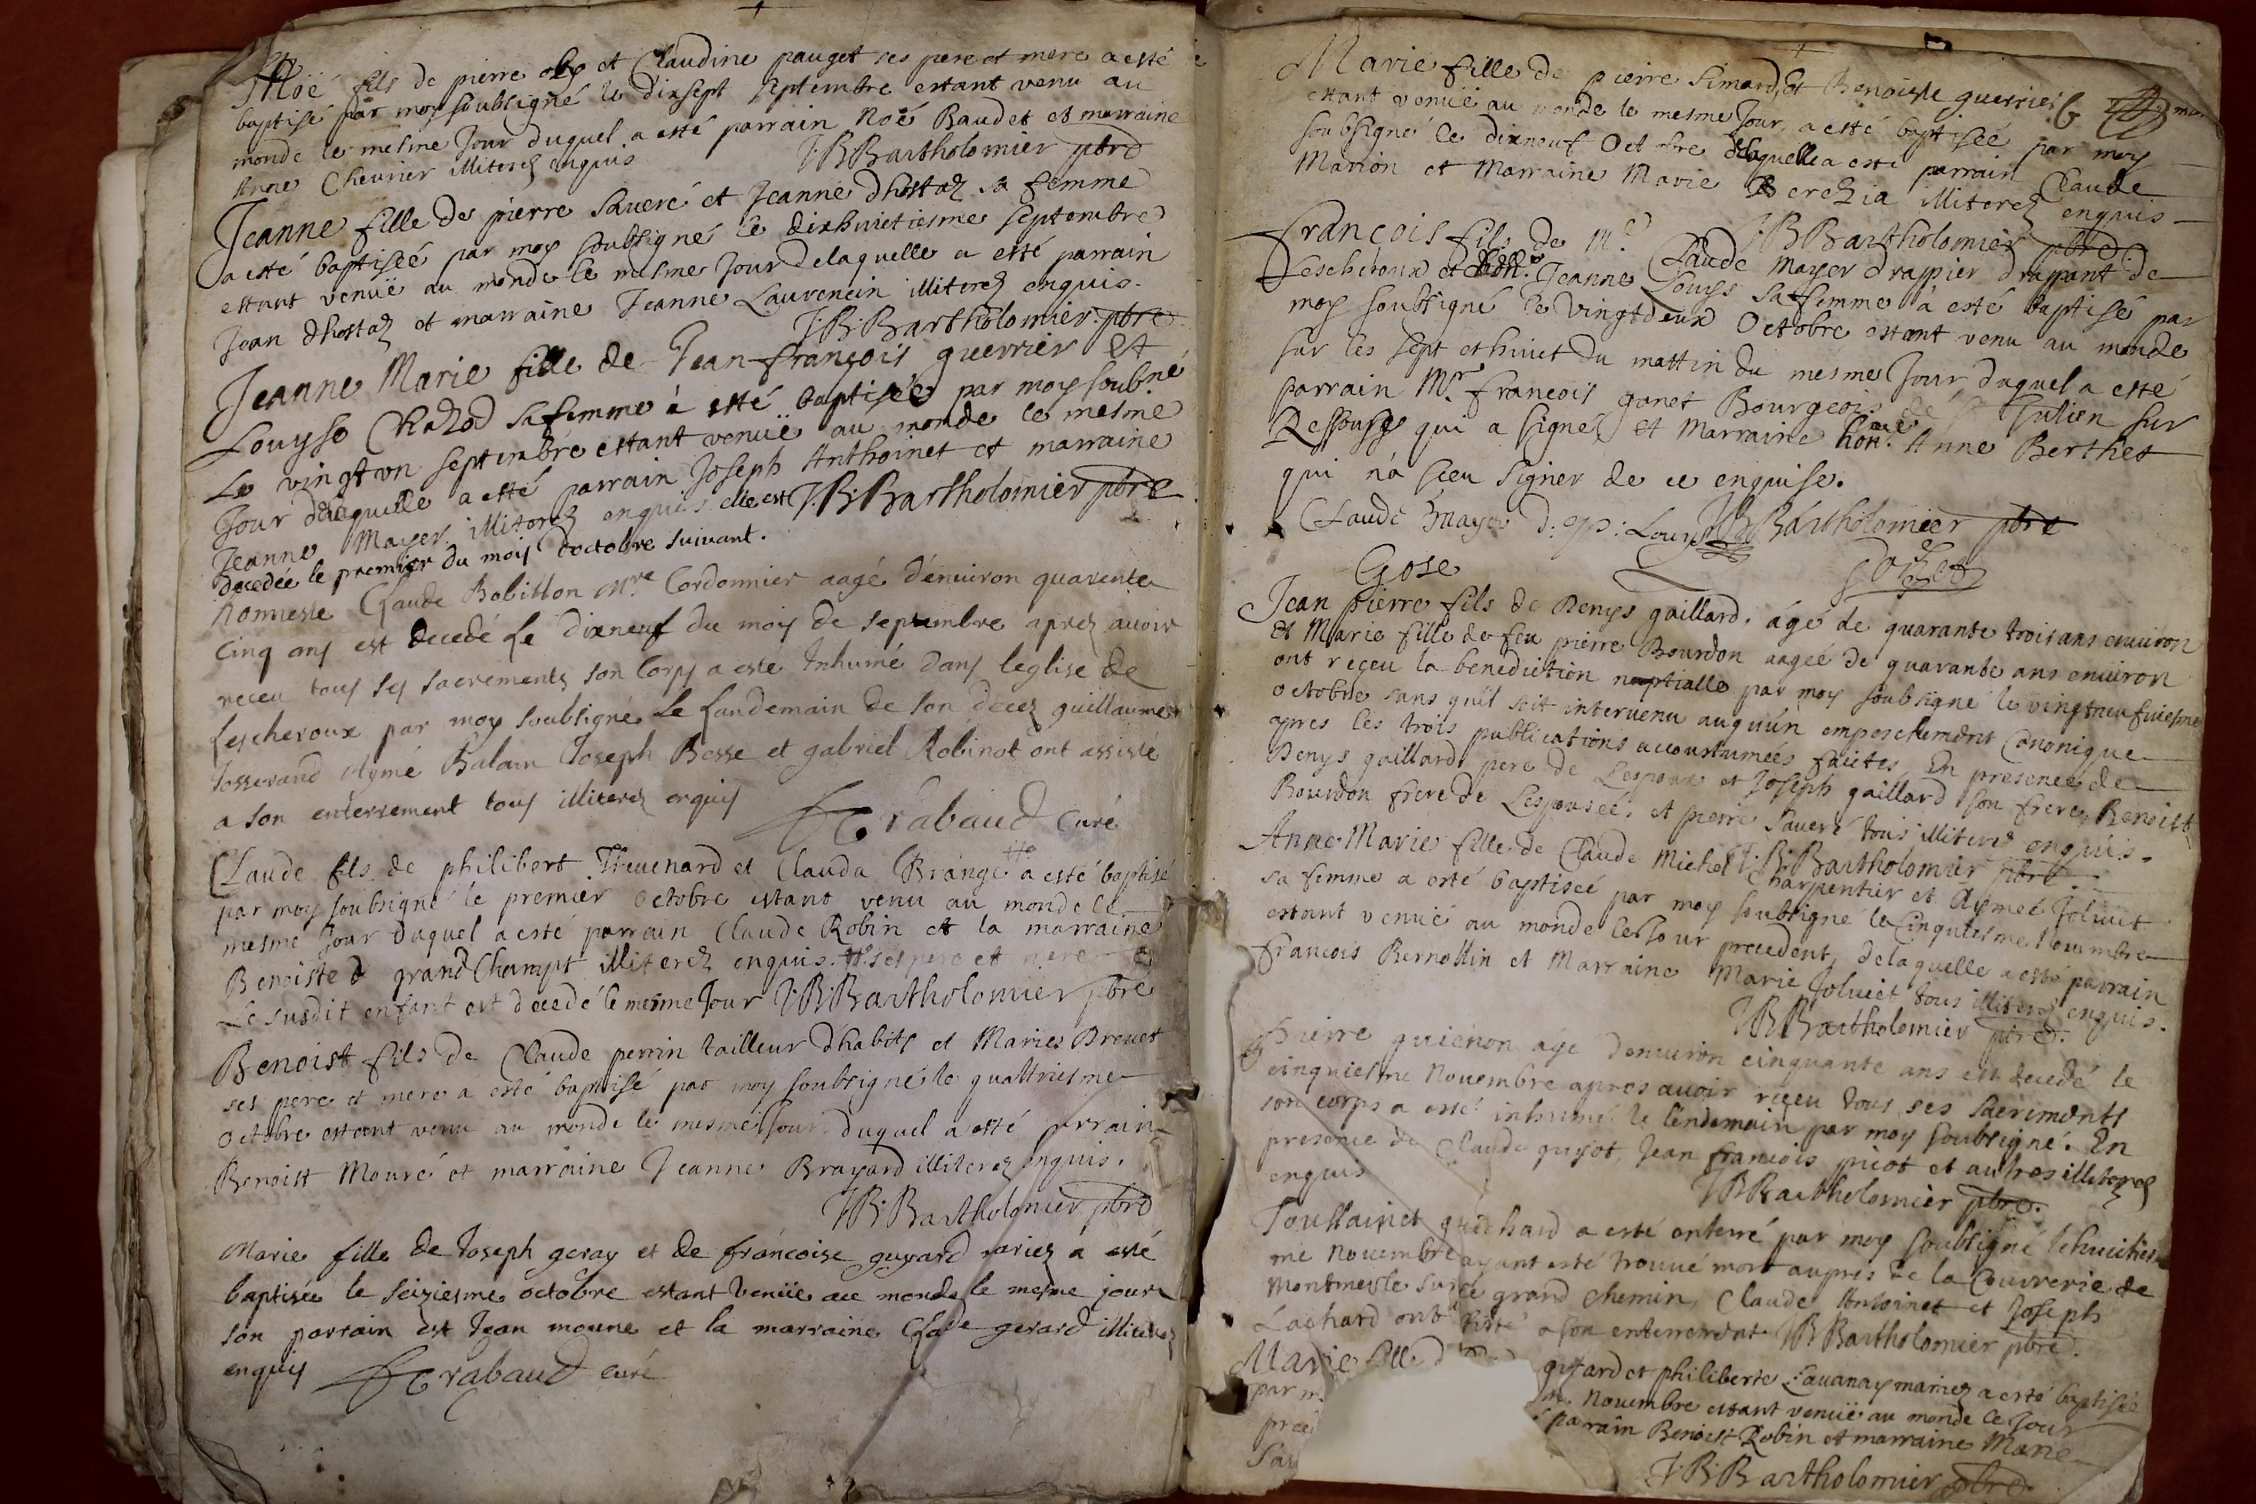 Noë fils de pierre et Claudine pauget ses pere et mere a esté
baptisé par moy soubsigné le dixsept septembre estant venu au
monde le mesme Jour duquel a esté parrain Noë Baudet et marraine
Anne Chevrier illiterez enquis J:B:Bartholomier pbre
Jeanne fille de pierre Saveré et Jeanne dhostaz sa femme
a esté baptiseé par moy soubsigné le dixhuictiesme septembre
estant venuë au monde le mesme Jour delaquelle a esté parrain
Jean dhostaz et marraine Jeanne Laurencin illiterez enquis.
J:B:Bartholomier pbre
Jeanne Marie fille de Jean-françois guerrier et
Louyse Chazod sa femme à esté baptiseé par moy soubné
Le vingt vn septembre estant venuë au monde le mesme
Jour delaquelle a esté parrain Joseph Anthoinet et marraine
Jeanne Mayer illiterez enquis elle est J:B:Bartholomier pbre
Decedée le premier du mois d'octobre suivant.
honneste Claude Bobillon Mre Cordonnier aagé d'environ quarente
Cinq ans est decedé le dixneuf du mois de septembre aprez avoir
receu tous ses sacrements son Corps a esté Inhumé dans l'eglise de
Lescheroux par moy soubsigné Le Landemain de son decez guillaume
Josserand Aymé Balam Joseph Besse et gabriel Robinot ont assisté
a son enterrement tous illiterez enquis
Trabaud Curé
Claude fils de philibert Thevenard et Clauda Brange a esté baptisé
par moy soubsigné le premier octobre estant venu au monde le
mesme Jour duquel a esté parrain Claude Robin et la marraine
Benoiste grand Champt illiterez enquis. ses pere et mere
Le susdit enfant est decedé le mesme Jour J:B:Bartholomier pbre
Benoist fils de Claude perrin tailleur dhabits et Marie Brevet
ses pere et mere a esté baptisé par moy soubsigné le quattriesme
Octobre estant venu au monde le mesme Jour duquel a esté parrain
Benoist Mouré et marraine Jeanne Brayard illiterez enquis.
J:B:Bartholomier pbre
Marie fille de Joseph geray et de francoise guyard mariez a esté
baptisée le seiziesme octobre estant venüe au monde le mesme jour
son parrain est Jean moune et la marraine Clade gerard illiterez
enquis Trabaud curé
Marie fille de pierre Simard, et Benoiste guerrier
estant venuë au monde le mesme Jour, a esté baptiseé par moy
soubsigné le dixneuf Octobre delaquelle a esté parrain Claude
Marion et Marraine Marie illiterez enquis
J:B:Bartholomier pbre.
François fils de Me Claude Mayer drappier drappant de
Lescheroux et Jeanne Louys sa femme à esté baptisé par
moy soubsigné le vingtdeux Octobre estant venu au monde
sur les sept et huict du mattin du mesme Jour duquel a esté
parrain Mr. françois ganet Bourgeois de St Julien sur
Ressouse qui a signé et Marraine hon. Anne Berthet
qui n'a sceu signer de ce enquise.
Claude Mayer J:B:Bartholomier pbre
Jean pierre fils de Denys gaillard, ágé de quarante trois ans environ
et Marie fille de feu pierre Bourdon aageé de quarante ans environ
ont reçeu la benediction nuptialle par moy soubsigné le vingtneufviesme
octobre sans qu'il soit intervenu auquun empeschement Canonique
apres les trois publications accoustumées faictes, En presence de
Denys gaillard, pere de Lespoux et Joseph gaillard son frere, Benoist
Bourdon frere de Lespouseé, et pierre Saveré tous illiterez enquis.
J:B:Bartholomier pbre
Anne-Marie fille de Claude Michel Charpentier et Aymeé Joluiet
sa femme a esté baptiseé par moy soubsigné le Cinquiesme Novembre
estant venuë au monde le Jour precedent, delaquelle a esté parrain
francois Bernollin et Marraine Marie Joluiet tous illiterez enquis.
J:B:Bartholomier pbre.
Pierre guienon ágé denviron cinquante ans est decedé le
cinquiesme Novembre apres avoir reçeu tous ses sacrements
son corps a esté inhumé le lendemain par moy soubsigné. En
presence de Claude guyot, Jean francois picot et autres illiterez
enquis J:B:Bartholomier pbre.
Toussainct guichard a esté enterré par moy soubsigné le huictiesme
me Novembre ayant esté trouvé mort aupres de la Couvrerie de
Montmesle sur le grand chemin, Claude Antoinet et Joseph
Lachard ont a son enterrement J:B:Bartholomier pbre.
Marie fille guyard et philiberte Lavanay mariez a esté baptisée
par m Novembre estant venuë au monde le Jour
prec parrain Benoist Robin et marraine Marie
J:B:Bartholomier pbre.